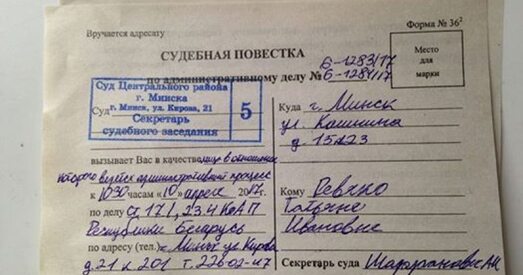 Вручается адресату
Форма № 36²
СУДЕБНАЯ ПОВЕСТКА
по административному делу № 6-1283/17
6-1284/17
Место
для
марки
Суд Центрального района
г. Минска
Суд г. Минск, ул. Кирова, 21
Секретарь
судебного заседания
5
вызывает Вас в качестве лица в отношении
которого ведется административный процесс
к 10 30 часам «10» апреля 2017г.
по делу ст 17.1, 23.4 КоАП
Республики Беларусь
по адресу (тел.) г. Минск ул Кирова
д. 21 к 201 т. 226-02-47
Куда г. Минск
ул.
д. 15
Кому Ревяко
Татьяне
Ивановне
Секретарь суда